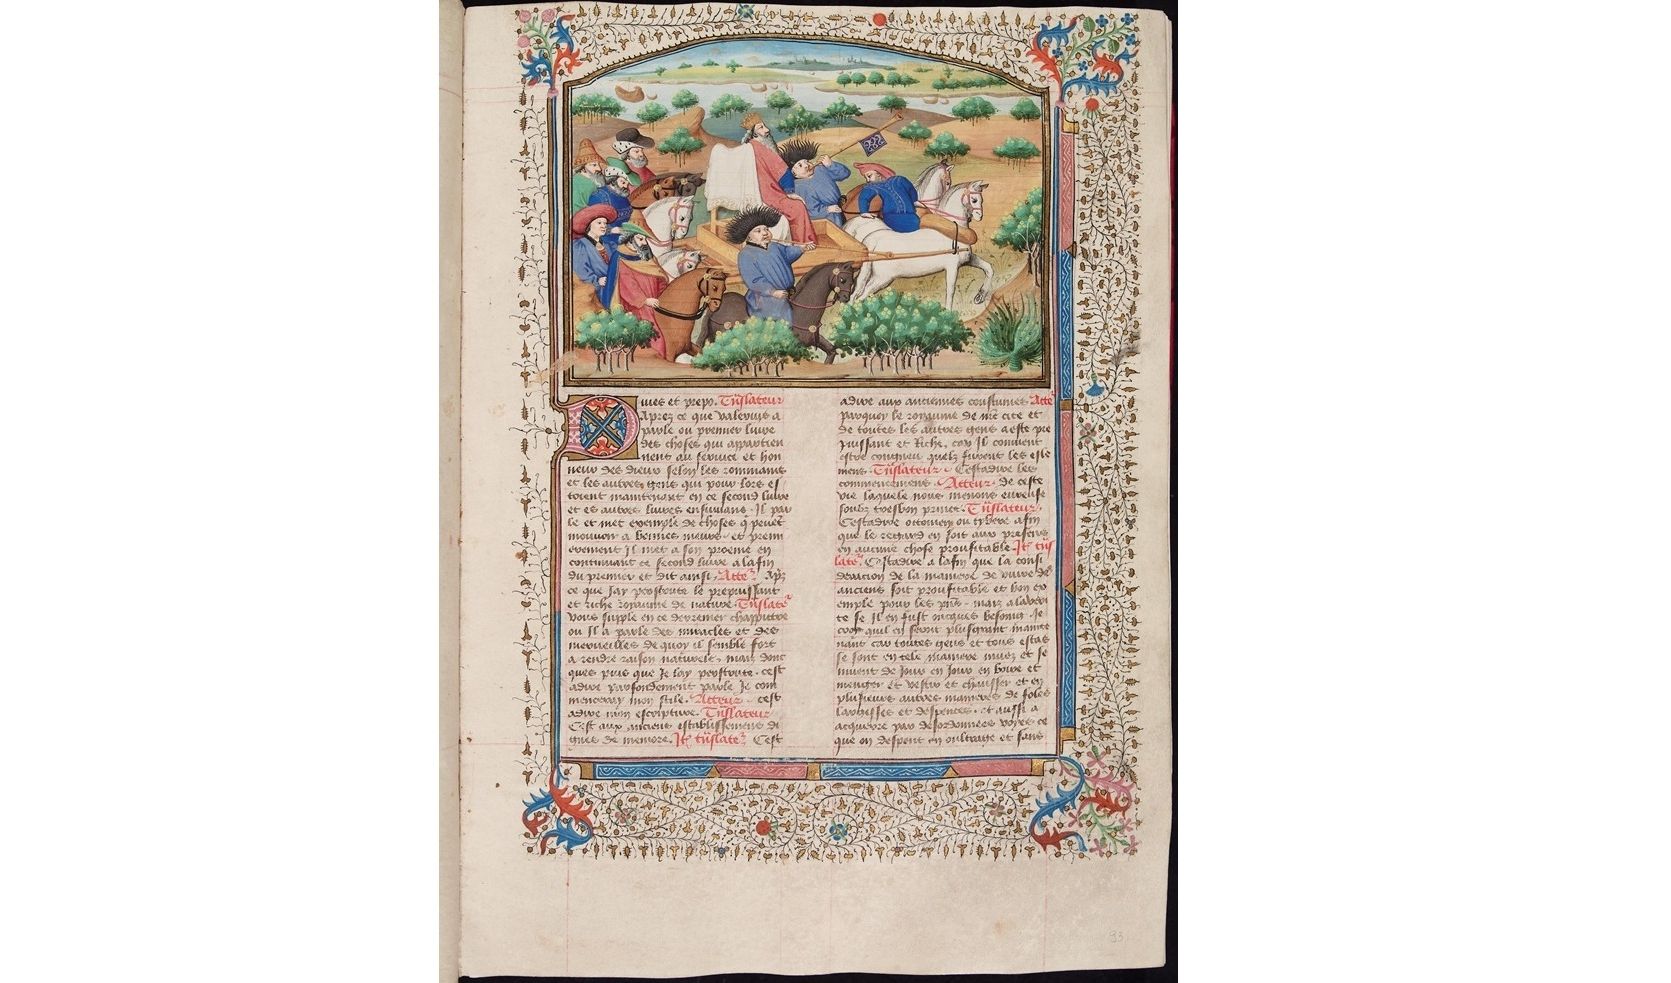 Dives et prepo. Tnslateur
Aprez ce que valerius a
parle ou premier livre
des choses qui appartien
nent au service et hon
neur des dieux selon les rommains
et les autres gens qui pour lors es
toient maintenant en ce second livre
et es autres livres ensuivans. Il par
le et met exemple de choses q peuet
mouvoir a bonnes meurs. et prem
erement Il met a son proeme en
continuant ce second livre a la fin
du premier et dit ainsi. Atte Apz
ce que Jay perscrute le prepuissant
et riche royaume de nature. Tnslate
Vous supple en ce derrenier chappittre
ou Il a parle des miracles et des
merveilles de quoy il semble fort
a rendre raison naturele. mais donc
ques puis que Je lay perscrute. cest
adire parfondement parle Je com
menceray mon stile. Acteur. cest
adire mon escripture. Tnslateur
Cest aux anciens establissemens di
gnes de memore. It tnslate Cest
adire aux anciennes coustumes Atte
parquoy le royaume de me cite et
de toutes les autres gens a este pre
puissant et Riche, car Il convient
estre congneu quelz furent les ele
mens. Tnslateur. Cestadire les
commencemens. Acteur. de ceste
vie laquele nous menons eureuse
soubz tresbon prince. Tnslateur.
Cestadire octovien ou tybere afin
que le regard en soit aux presens
en aucune chose prouffitable. It tns
late Cestadire a la fin que la consi
deracion de la maniere de vivre des
anciens soit prouffitable et bon ex
emple pour les pns. mais a laven
te se Il en fust oncques besoing. Je
croy quil en seroit plusgrant mainte
nant car toutes gens et tous estas
se sont en tele maniere muez et se
muent de Jour en Jour en boire et
menger et vestir et chausser et en
plusieurs autres manieres de foles
largesses et despences. et aussi a
acquerre par desordonnees voyes ce
que on despent en oultrage et sans
93